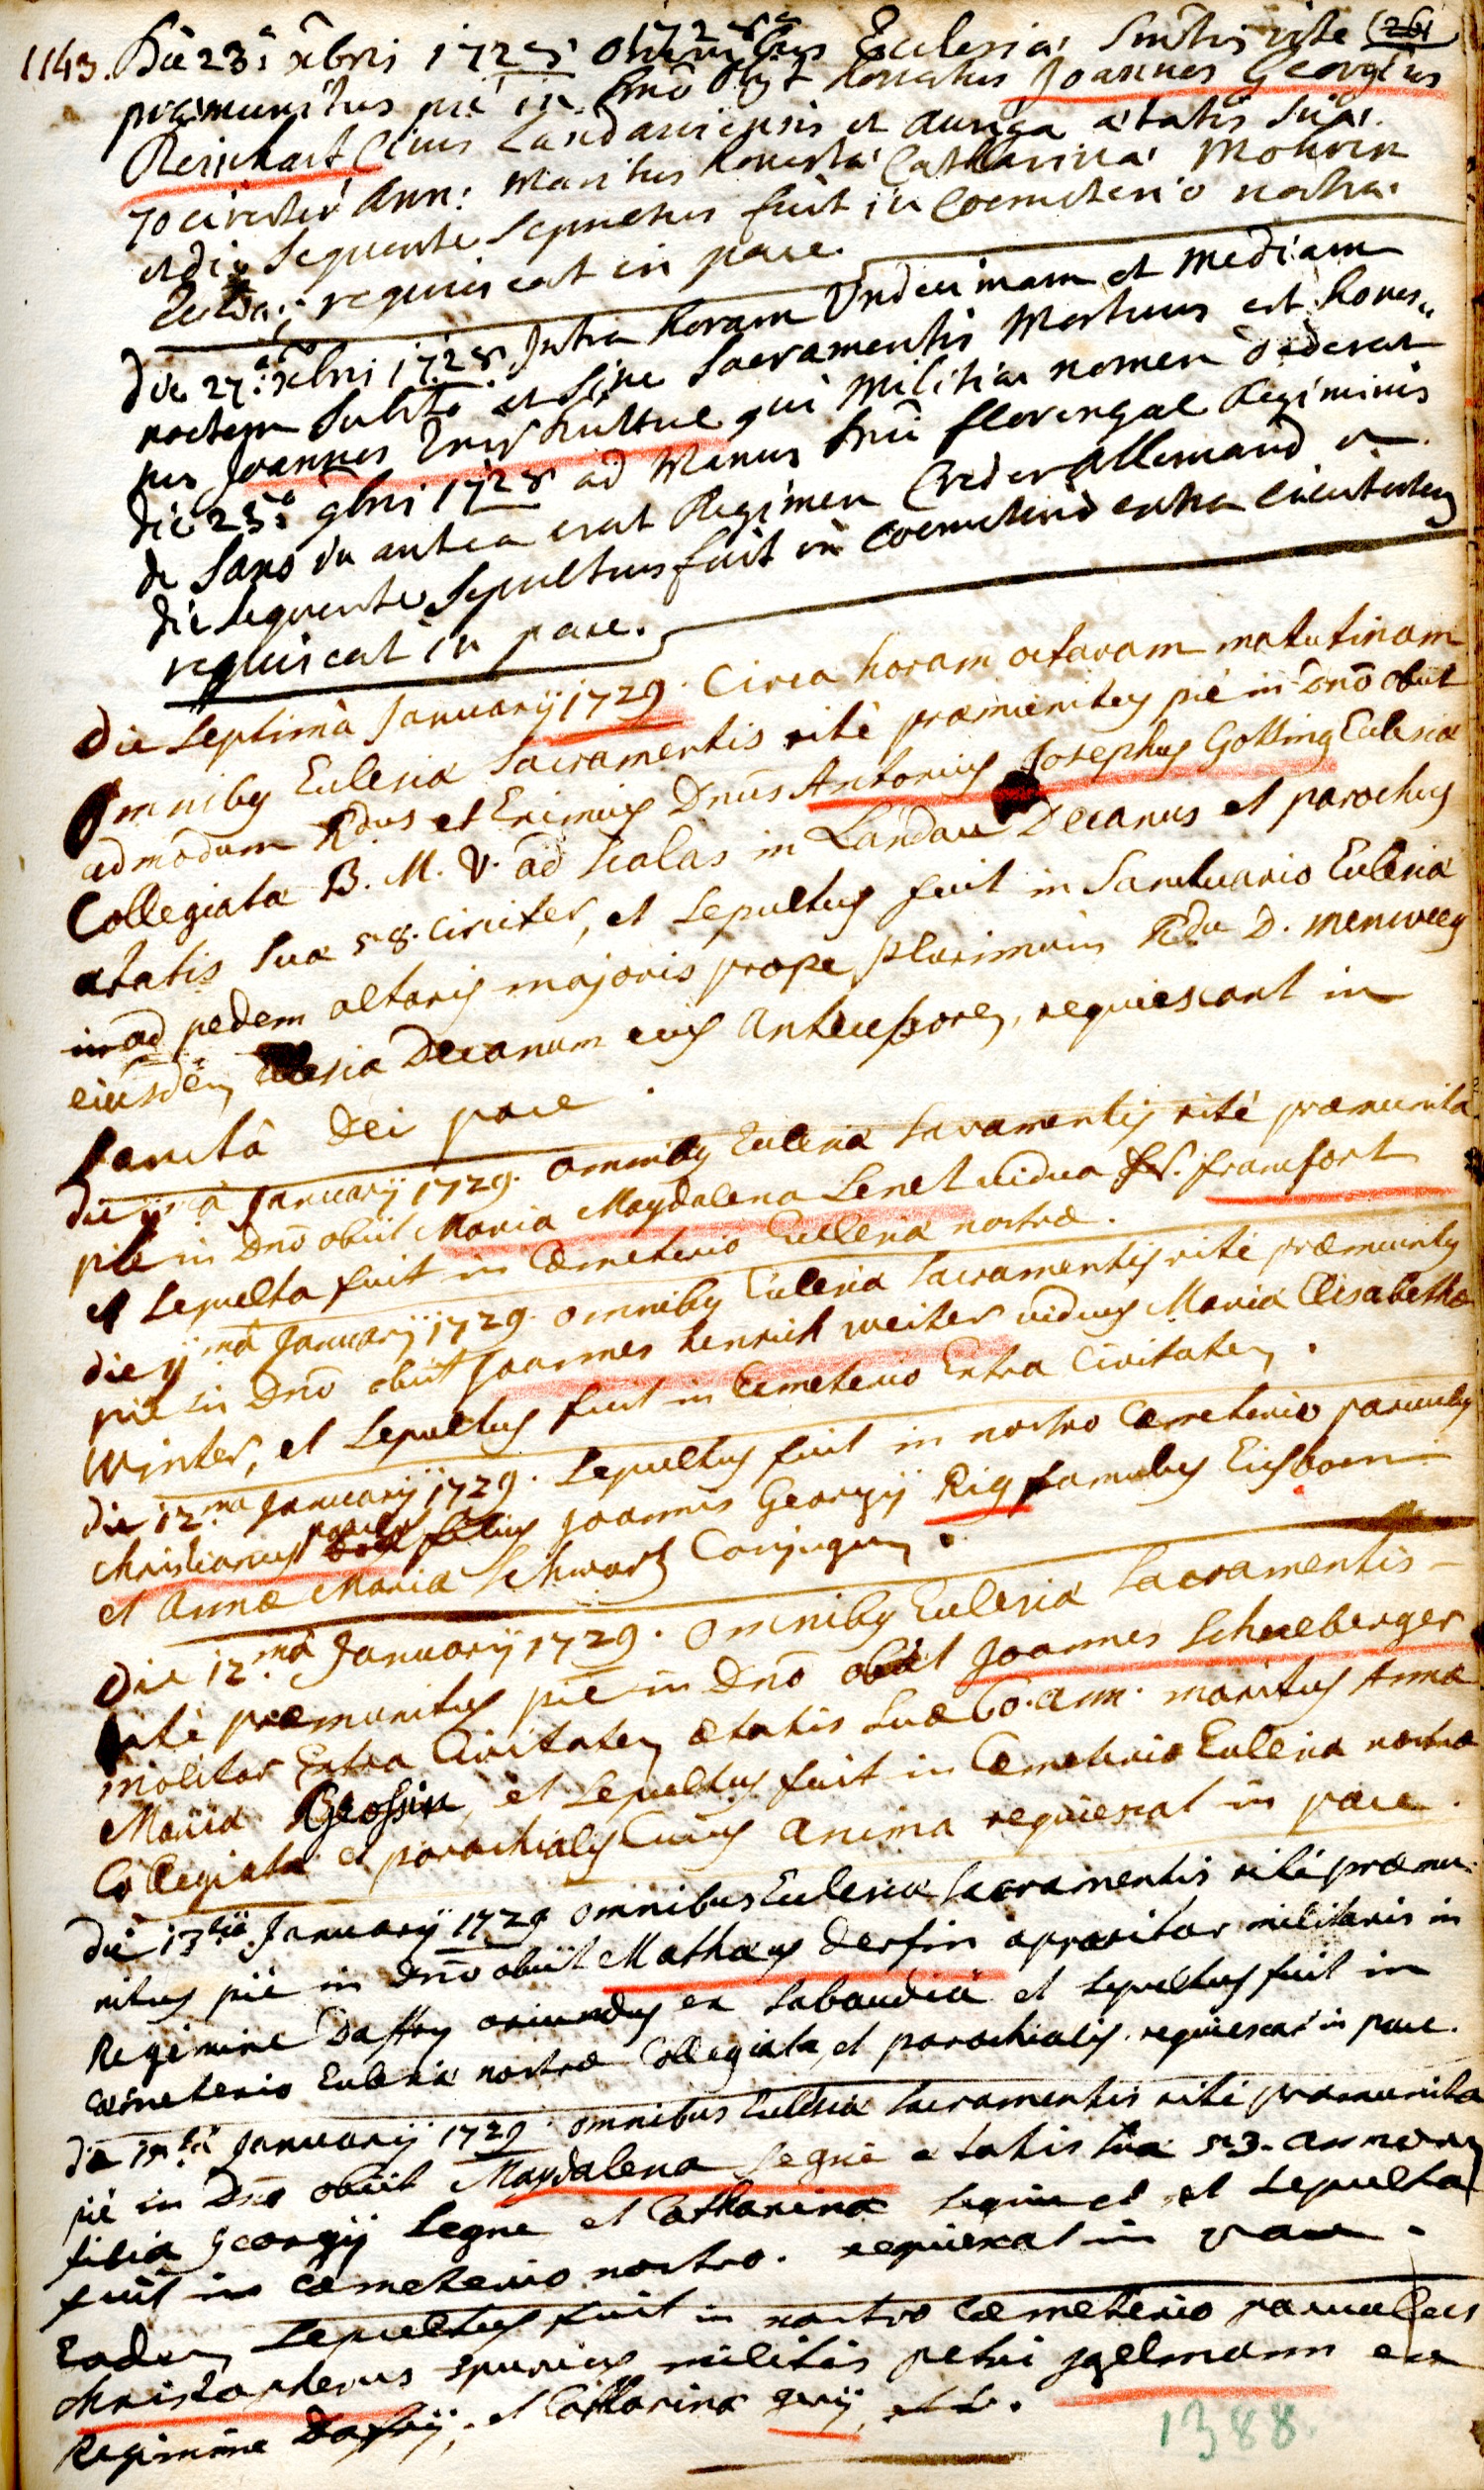 1143. Die 23.a xbris 1728 omnibus Ecclesiæ Sm̄tis rite (26)
præmunitus pie in Dn̄o obiit honestus Joannes Georgius
Reinhart Civis Landaviensis et auriga ætatis suæ
70 circiter Ann: maritus honestæ Catharinæ Mohrin
et die sequente sepultus fuit in Coemeterio nostræ
requiescat in pace.
Die 27.a xbris 1728 Intra horam Undecimam et mediam
noctem subito et sine Sacramentis Mortuus est hones„
tus Joannes qui Militiæ nomen dederat
die 25.a 9bris 1728 ad Manus Dn̄i florengal Regiminis
de Saxo in antea erat Regimen Allemand et
die sequente Sepultus fuit in Coemeterio extra Civitatem
requiescat in pace.
Die Septima Januarij 1729. Circa horam octavam matutinam
Omnibus Ecclesiæ Sacramentis ritè præmunitus piè in Dn̄o obiit
admodum R.dus et Eximius Dn̄us Antonius Josephus Gotting Ecclesiæ
Collegiatæ B. M. V. ad Scalas in Landau Decanus et parochus
ætatis suæ 58. circiter, et Sepultus fuit in Sanctuario Ecclesiæ
ad pedem altaris majoris prope plurimum R.du D. Menweeg
eiusdem Ecclesiæ Decanum eius Antecessorem, requiescant in
Sancta Dei pace.
Die Januarij 1729. Omnibus Ecclesiæ Sacramentis ritè præmunita
piè in Dn̄o obiit Maria Magdalena Lenel vidua francfort
et Sepulta fuit in Cœmeterio Ecclesiæ nostræ.
die Januarij 1729. omnibus Ecclesiæ Sacramentis ritè præmunitus
piè in Dn̄o obiit Joannes henrich weiter viduus Mariæ Elisabethæ
Winter, et Sepultus fuit in Cœmeterio Extra Civitatem.
die 12.ma Januarij 1729. Sepultus fuit in nostro Cœmeterio parvulus
Christianus filius Joannis Georgij Rig famulus
et Annæ Mariæ Schwartz Conjugum.
Die 12.ma Januarij 1729. Omnibus Ecclesiæ Sacramentis
ritè præmunitus piè in Dn̄o obiit Joannes Schneeberger
molitor Extra Civitatem ætatis suæ 60. ann. maritus Annæ
Mariæ Grossin, et Sepultus fuit in Cœmeterio Ecclesiæ nostræ
Collegiatæ et parochialis Cuius anima requiescat in pace.
die 13.tiâ Januarij 1729 omnibus Ecclesiæ Sacramentis ritè præmu-
nitus piè in Dn̄o obiit Mathæus Derfin apparitor militaris in
Regimine Daffry oriundus ex Sabaudiâ et sepultus fuit in
cœmeterio Ecclesiæ nostræ Collegiatæ et parochialis. requiescat in pace.
die 15.ta Januarij 1729. omnibus Ecclesiæ Sacramentis ritè præmunita
piè in Dn̄o obiit Magdalena Legne ætatis suæ 53. annorum
filia Georgij Legne et Catharinæ et Sepulta
fuit in cœmeterio nostro. requiescat in pace.
Eadem Sepultus fuit in nostro cœmeterio parvulus
Christopherus spurius militis petri jgelmann ex
Regimine Daffrij, et Catharinæ
1388.